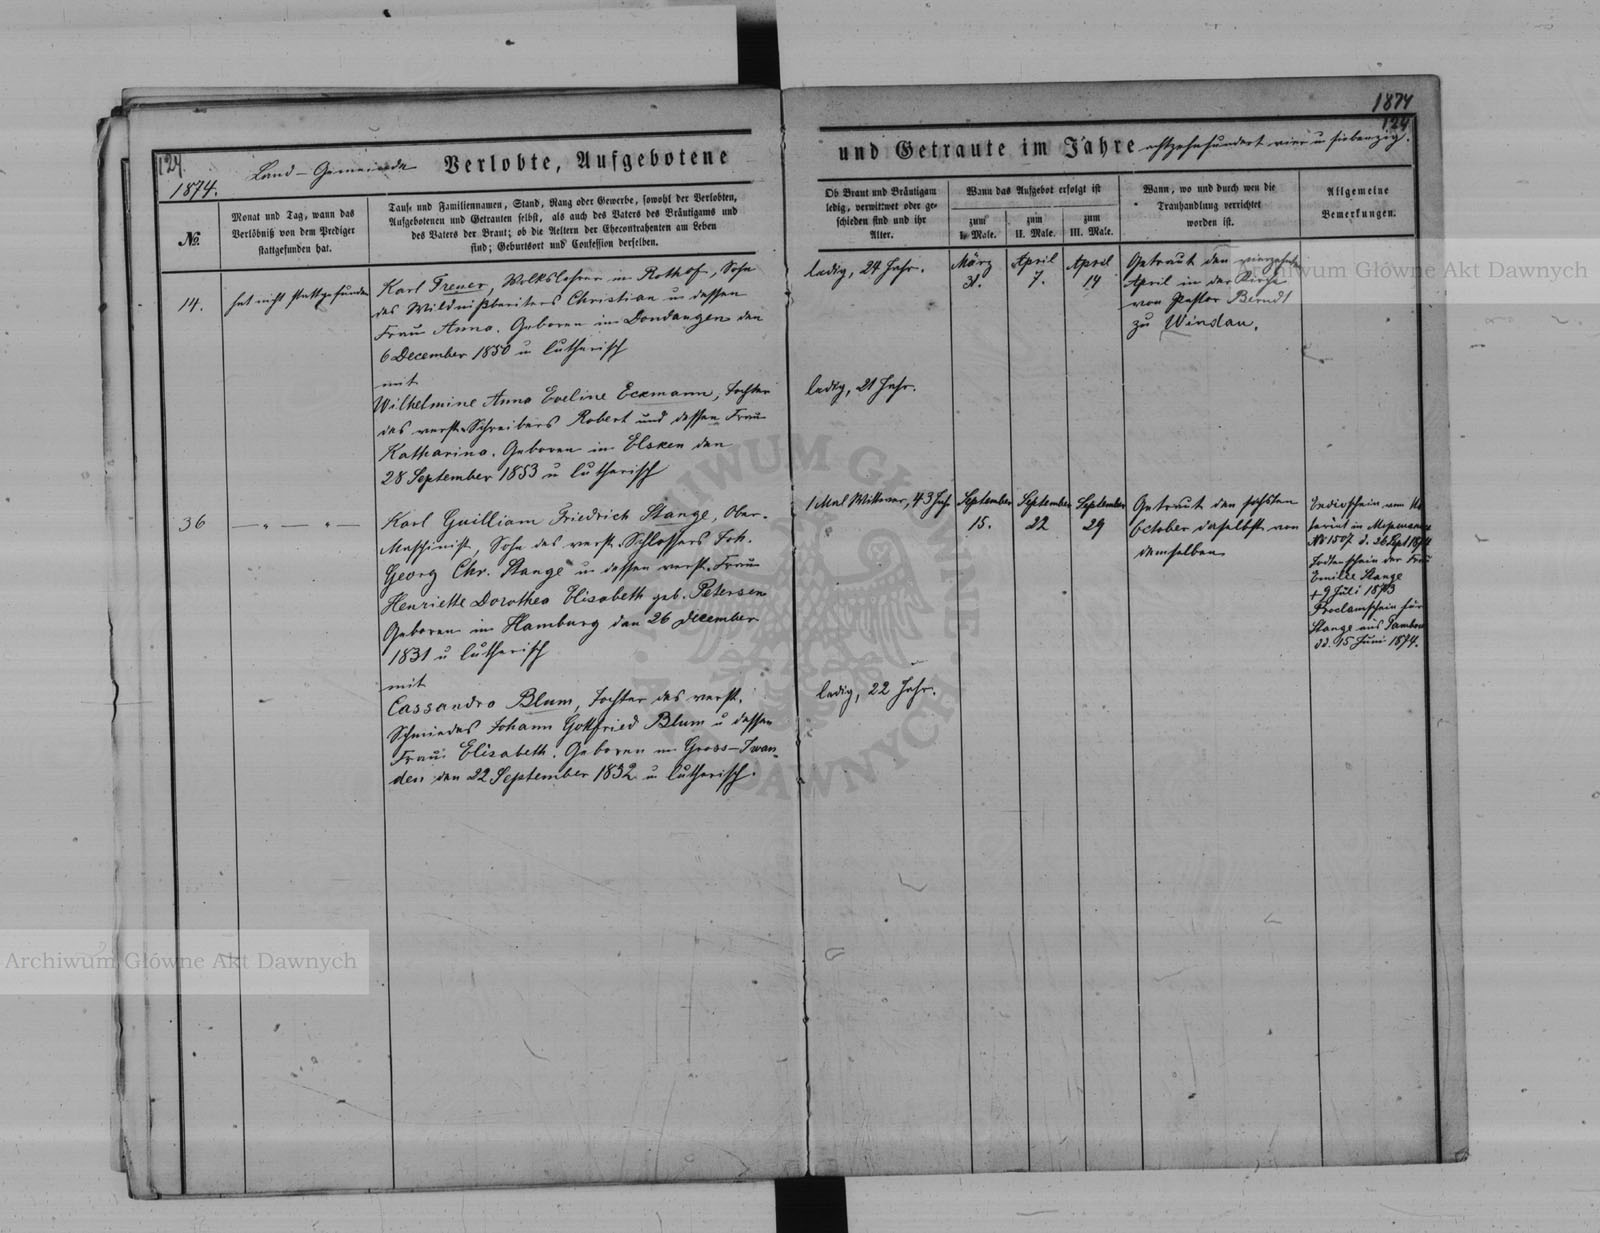 1874
124.
124
Land-Gemeinde Verlobte, Aufgebotene
und Getraute im Jahre achtzehnhundert vier u siebenzig.
1874.
No.
Monat und Tag, wann das
Verlöbniß von dem Prediger
stattgefunden hat.
Tauf= und Familiennamen, Stand, Rang oder Gewerbe, sowohl der Verlobten,
Aufgebotenen und Getrauten selbst, als auch des Vaters des Bräutigams und
des Vaters der Braut; ob die Aeltern der Ehecontrahenten am Leben
sind; Geburtsort und Confession derselben.
Ob Braut und Bräutigam
ledig, verwittwet oder ge=
schieden sind und ihr
Alter.
Wann das Aufgebot erfolgt ist
zum
I. Male.
zum
II. Male.
zum
III. Male.
Wann, wo und durch wen die
Trauhandlung verrichtet
worden ist.
Allgemeine
Bemerkungen.
14.
hat nicht stattgefunden
Karl Freuer, Volkslehrer in Rothof, Sohn
des Wildnißbereiters Christian u dessen
Frau Anna. Geboren in Dondangen den
6 December 1850 u lutherisch
mit
Wilhelmine Anna Eveline Eckmann, Tochter
des verst. Schreibers Robert und dessen Frau
Katharina. Geboren in Elsken den
28 September 1853 u lutherisch
ledig, 24 Jahr.
ledig, 21 Jahr.
März
31.
April
7.
April
14
Getraut den vierzehnten
April in der Kirche
von Pastor Berndt
zu Windau.
36
— „ — „ —
Karl Guilliam Friedrich Stange, Ober-
Maschinist, Sohn des verst. Schlossers Joh.
Georg Chr. Stange u dessen verst. Frau
Henriette Dorothea Elisabeth geb. Petersen
Geboren in Hamburg den 26 December
1831 u lutherisch
mit
Cassandra Blum, Tochter des verst.
Schmiedes Johann Gottfried Blum u dessen
Frau Elisabeth. Geboren in Gross-Iwan
den den 22 September 1832 u lutherisch.
1 Mal Wittwer, 43 Jahr
ledig, 22 Jahr.
September
15.
September
22
September
29
Getraut den sechsten
October daselbst von
demselben
No 1507 d. 26 Sept 1874
Todtenschein der Frau
Emilie Stange
† 9 Juli 1873
Proclamschein für
Stange aus Tambow
dd. 15 Juni 1874.
Archiwum Główne Akt Dawnych
Archiwum Główne Akt Dawnych
ARCHIWUM GŁÓWNE AKT DAWNYCH